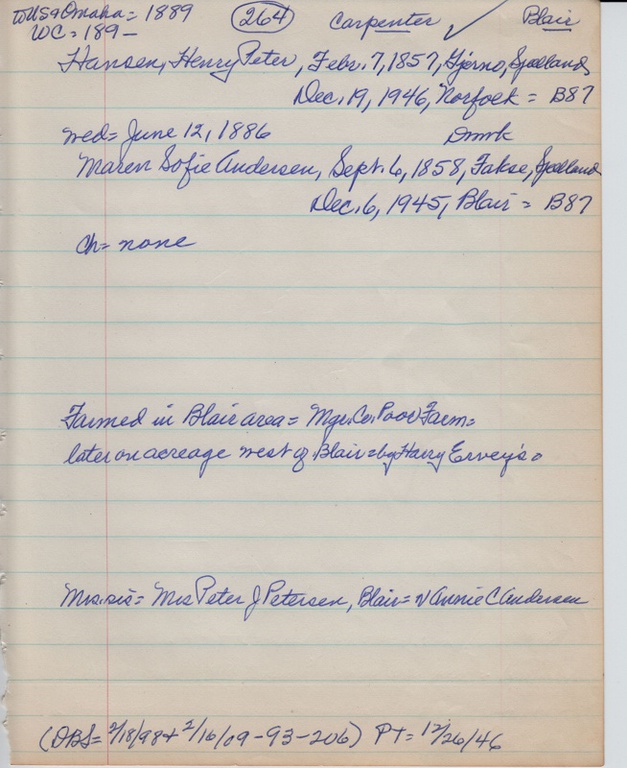 to USA Omaha = 1889 264 Carpenter ✓ Blair
WC = 189-
Hansen, Henry Peter, Febr. 7, 1857, Gjerno, Sjælland
Dec. 19, 1946, Norfolk = B87
wed = June 12, 1886 Dnmk
Maren Sofie Andersen, Sept. 6, 1858, Fakse, Sjælland
Dec. 6, 1945, Blair = B87
Ch = none
Farmed in Blair area = Mgr. Co. Poor Farm =
later on acreage west of Blair = by Harry Ervey's =
Mrs. sis = Mrs Peter J Petersen, Blair = Annie C Andersen
(OBS = 2/18/98 + 2/16/09 - 93 - 206) PT = 12/26/46